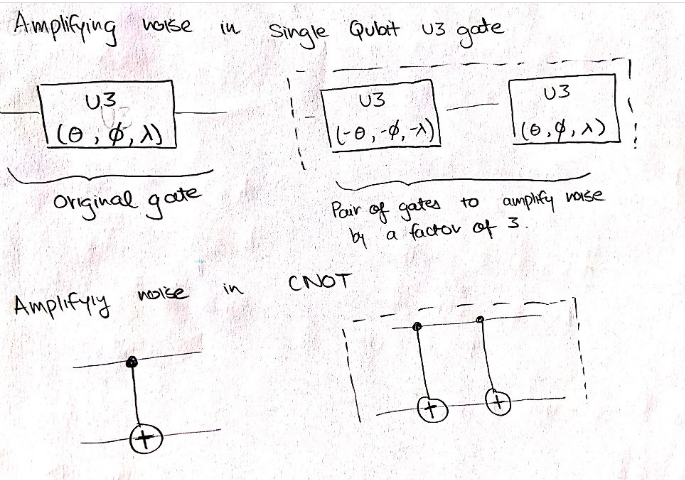 Amplifying noise in Single Qubit U3 gate
U3
(θ, ϕ, λ)
U3
(-θ, -ϕ, -λ)
U3
(θ, ϕ, λ)
Original gate
Pair of gates to amplify noise
by a factor of 3.
Amplifyly noise in CNOT